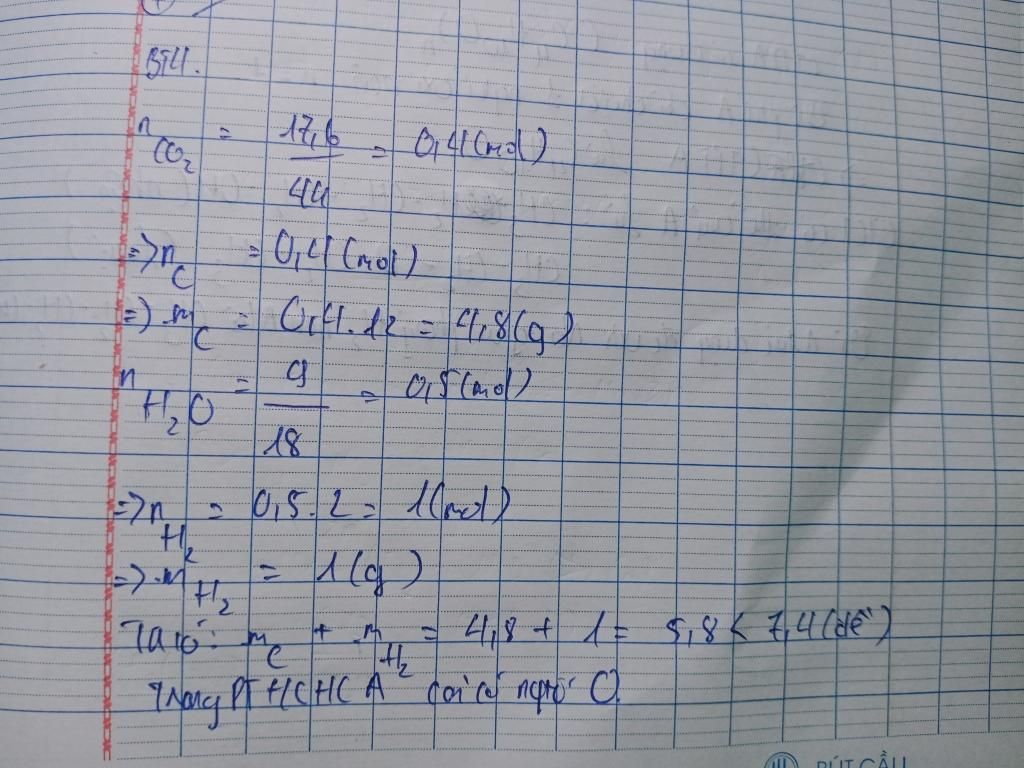 BT4.
n CO₂ = 17,6 / 44 = 0,4 (mol)
=> n C = 0,4 (mol)
=> m C = 0,4.12 = 4,8 (g)
n H₂O = 9 / 18 = 0,5 (mol)
=> n H₂ = 0,5.2 = 1 (mol)
=> m H₂ = 1 (g)
Ta có: m C + m H₂ = 4,8 + 1 = 5,8 < 7,4 (đề)
Trong PT HCHC A còn có ngtố O.
BÚT CẦU